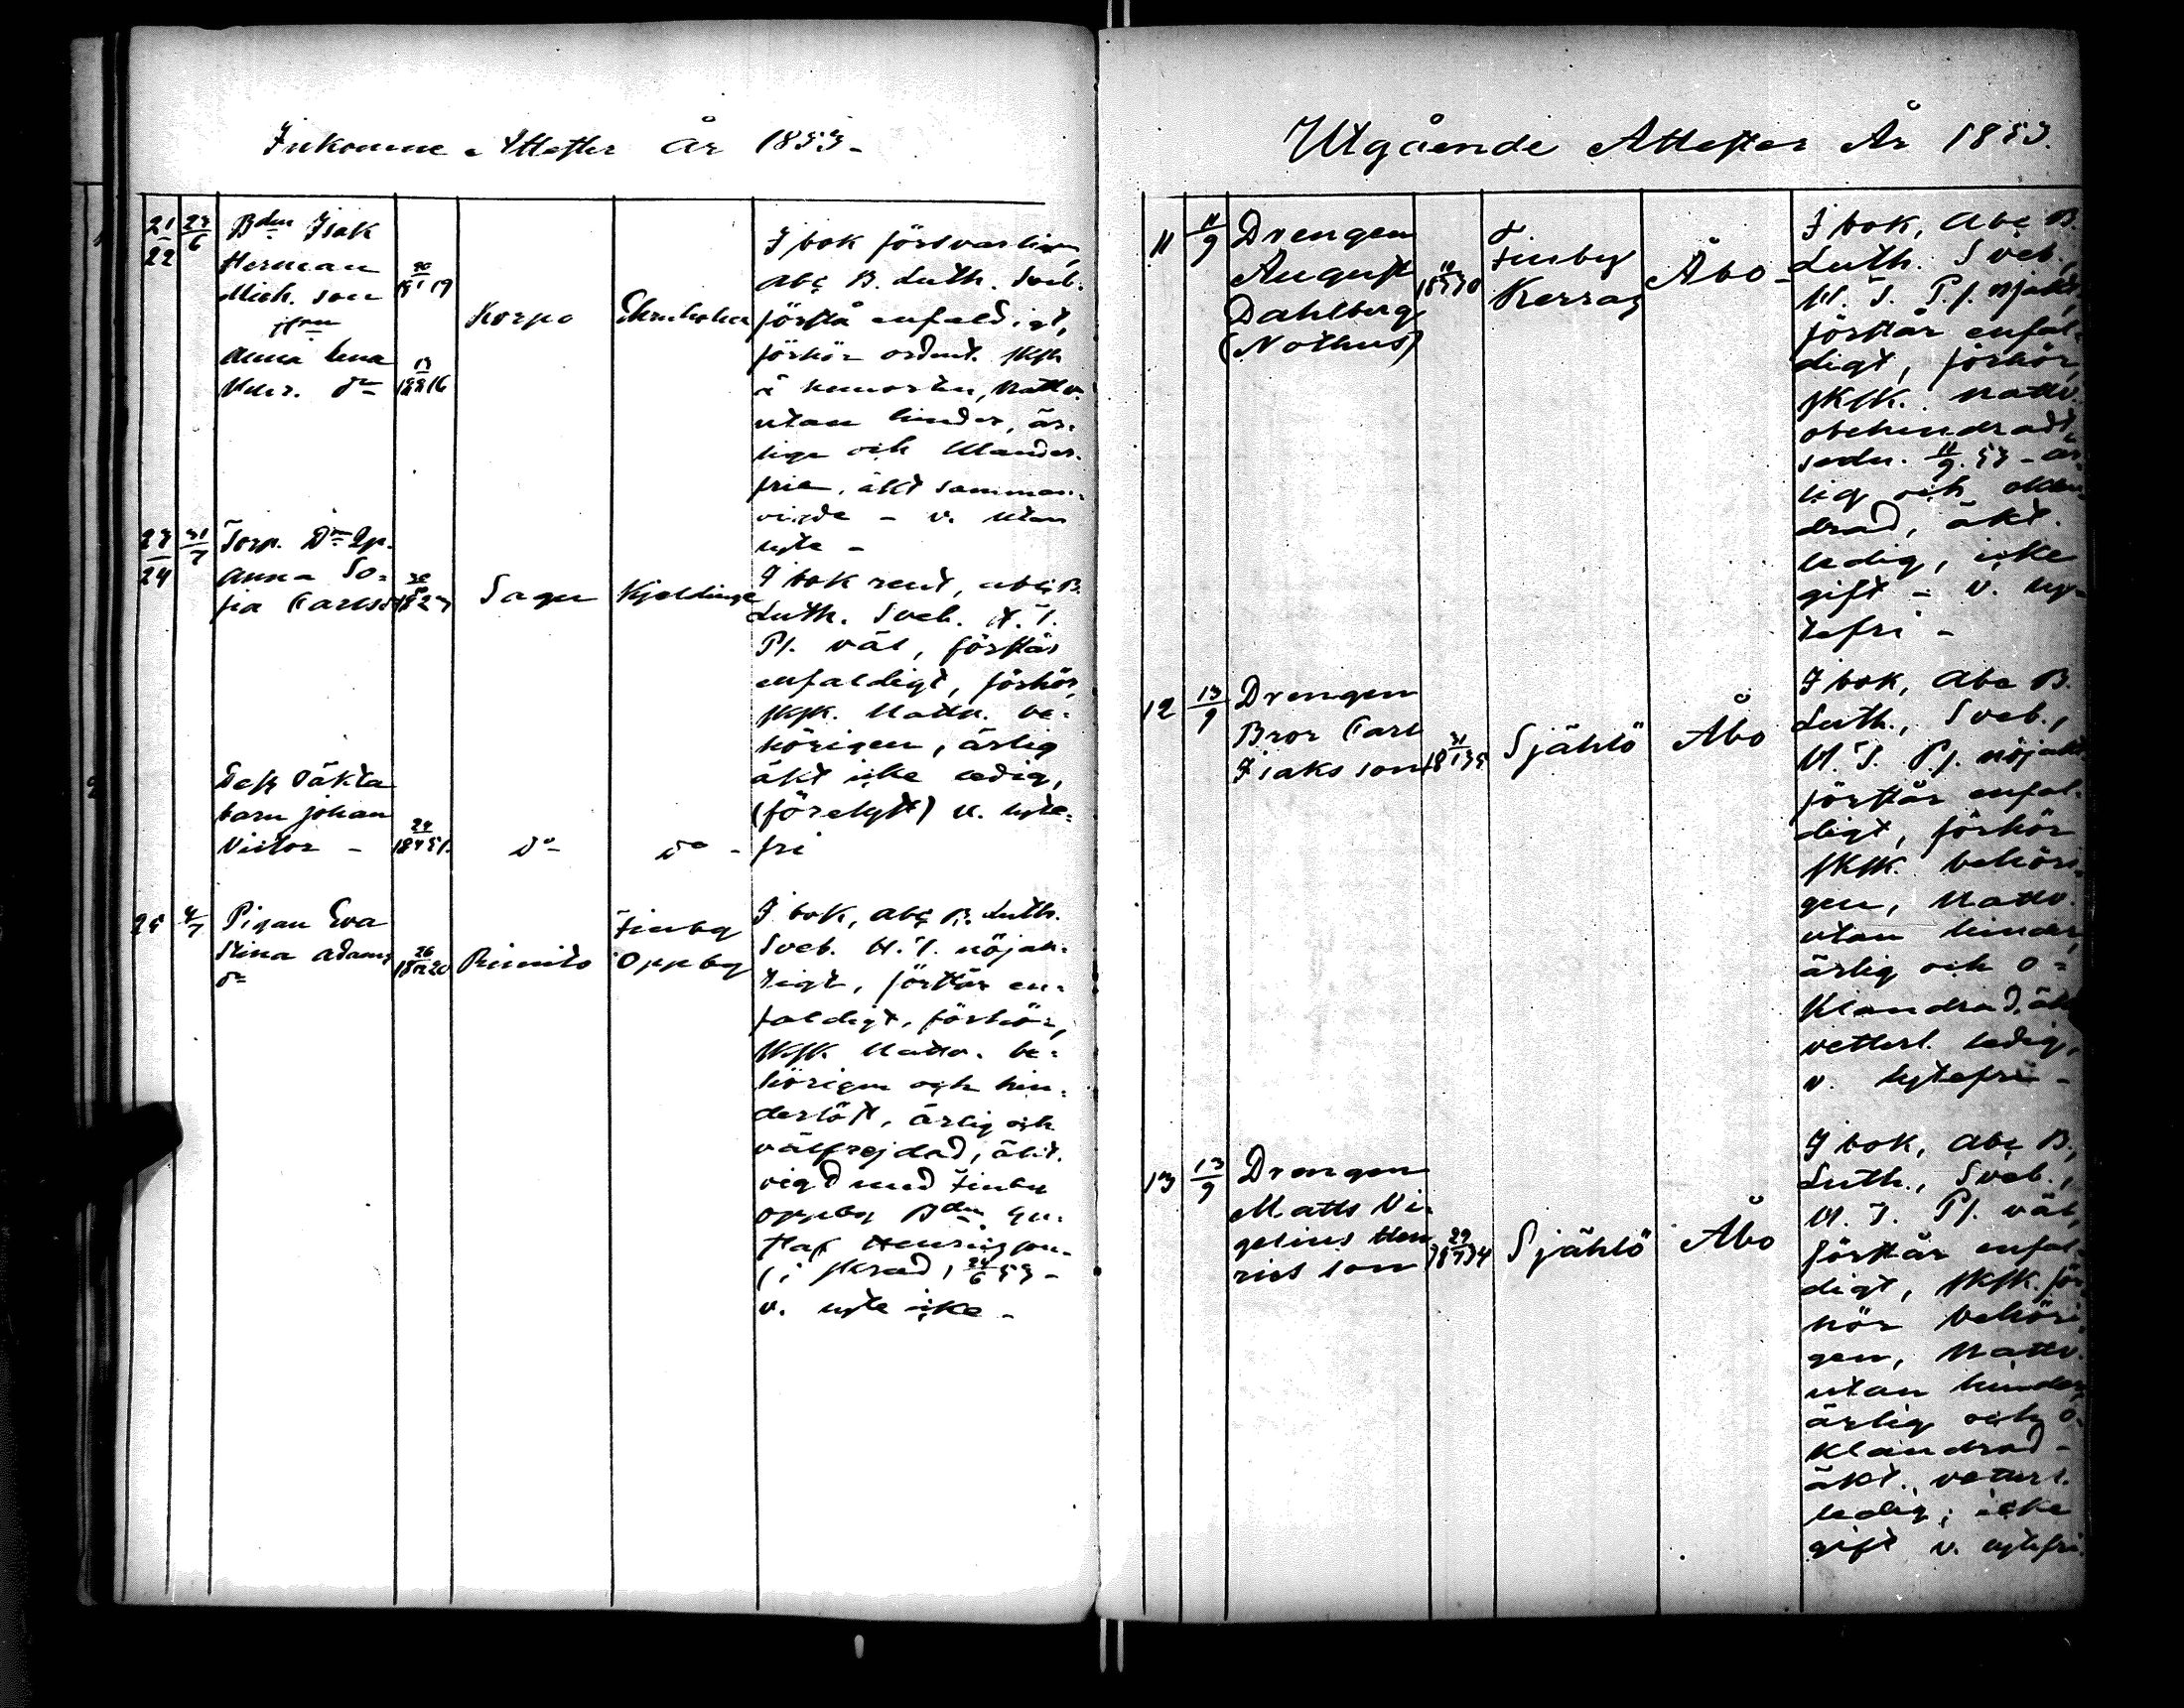 Inkomne Attester År 1853-
21
22
23/6
Bden Isak
Herman
Mich. son
Anna Lena
Henr. dr
Korpo
I bok försvarligen,
abc B. Luth. Sveb.
förstå enfaldigt,
förhör ordent. skrk
utan hinder, är-
liga och klander-
frie, äkt samman-
vigde - v. utan
lyte -
23
24
31/7
Torp. Dr
Anna So-
fia Carlsdr
Sagu
Kjeldinge
I bok rent, abc B.
Luth. Sveb. H. T.
Ps. väl, förstår
enfaldigt, förhör,
skrk. Nattv. be-
hörigen, ärlig
äkt icke ledig,
(förelyst) v. lyte-
fri
Dess oäkta
barn Johan
Victor -
do
do -
25
4/7
Pigan Eva
Stina Adams
dr
Rimito
Finby
Oppby
I bok, abc B. Luth.
Sveb. H. T. nöjak-
tigt, förstår en-
faldigt, förhör,
skrk Nattv. be-
hörigen och hin-
derlöst, ärlig och
välfrejdad, äkt.
vigd med Finby
Oppby Bdn Gu-
staf Henricsson
24/6 53 -
v. lyte icke -
Utgående Attester År 1853.
11
11/9
Drengen
August
Dahlberg
(Nothus)
Finby
Åbo -
I bok, abc B.
Luth. Sveb.,
H. T. Ps. nöjakt,
förstår enfal-
digt, förhör,
skrk. Nattv.
obehindradt,
sedn. 11/9. 53 - är-
lig och oklan-
drad, äkt.
ledig, icke
gift - v. ly-
tefri -
12
13/9
Drengen
Bror Carl
Isaksson
Själlö
Åbo
I bok, abc B.
Luth., Sveb.,
H. T. Ps. nöjakt
förstår enfal-
digt, förhör
skrk. behöri-
gen, Nattv.
utan hinder,
ärlig och o-
klandrad, äkt
vetterl. ledig,
v. lytefri -
13
13/9
Drengen
Matts Vi-
gelius Hen
rics son
Själlö
Åbo
I bok, abc B.,
Luth., Sveb.,
H. T. Ps. väl,
förstår enfal-
digt, skrk. för-
hör behöri-
gen, Nattv.
utan hinder,
ärlig och o-
klandrad -
äkt. vetterl.
ledig, icke
gift v. lytefri.